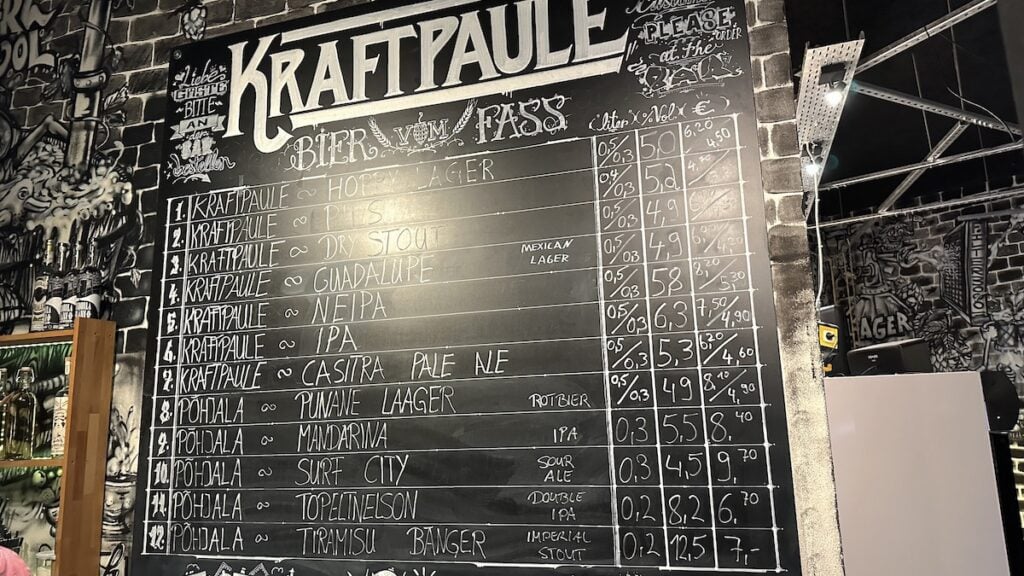 KRAFTPAULE
BIER VOM FASS
Liebe
GÄSTE
BITTE
AN
der
BAR
bestellen
PLEASE ORDER
at the
Liter % Vol. €
1. KRAFTPAULE ~ HOPPY LAGER 0,5/0,3 5,0 6,20/4,50
2. KRAFTPAULE ~ 0,4/0,3 5,2
3. KRAFTPAULE ~ DRY STOUT 0,5/0,3 4,9
4. KRAFTPAULE ~ GUADALUPE MEXICAN LAGER 0,5/0,3 4,9
5. KRAFTPAULE ~ NEIPA 0,5/0,3 5,8 8,20/5,30
6. KRAFTPAULE ~ IPA 0,5/0,3 6,3 7,50/4,90
7. KRAFTPAULE ~ CASITRA PALE ALE 0,5/0,3 5,3 /4,60
8. PÕHJALA ~ PUNANE LAAGER ROTBIER 0,5/0,3 4,9 8,10/4,90
9. PÕHJALA ~ MANDARINA IPA 0,3 5,5 8,40
10. PÕHJALA ~ SURF CITY SOUR ALE 0,3 4,5 9,70
11. PÕHJALA ~ TOPELTNELSON DOUBLE IPA 0,2 8,2 6,70
12. PÕHJALA ~ TIRAMISU BANGER IMPERIAL STOUT 0,2 12,5 7,-
LAGER